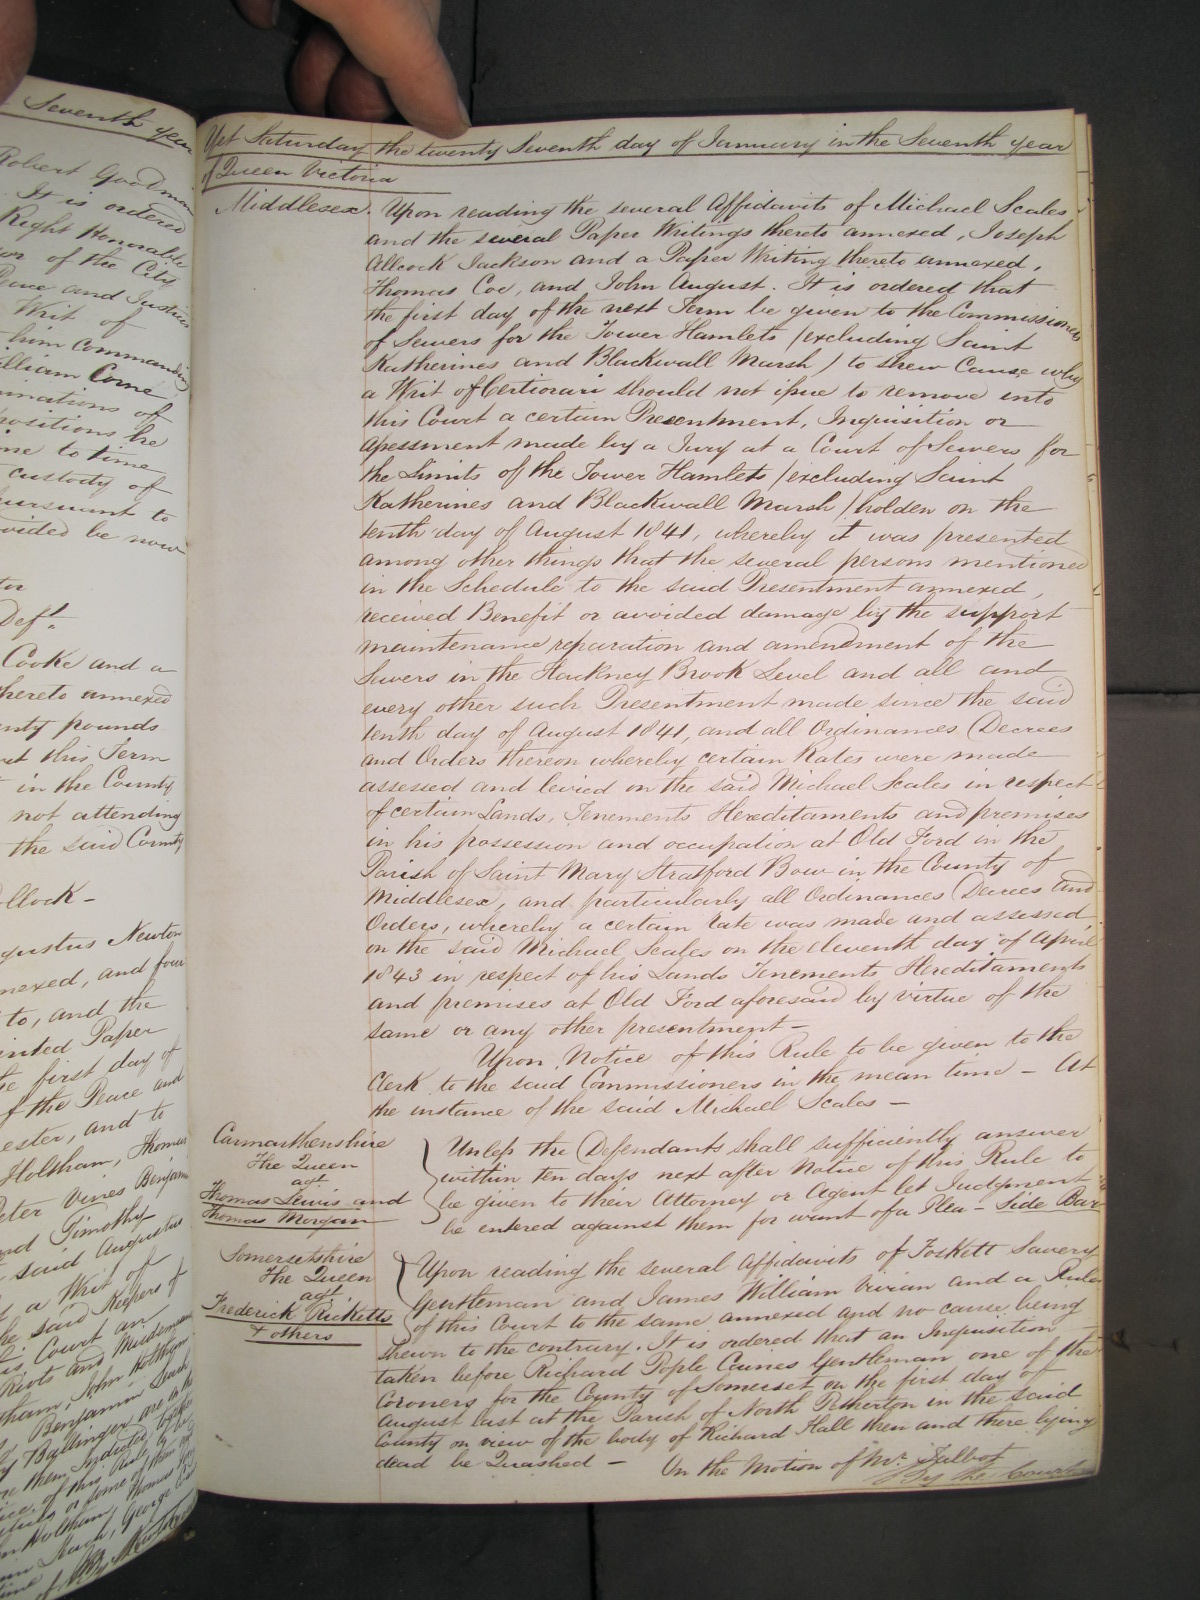 Seventh year
Robert Goodman
It is ordered
Right Honorable
of the City
Peace and Justices
Writ of
him commanding
William Corne
positions he
time to time
custody of
pursuant to
be now
Def.t
Cooke and a
thereto annexed
pounds
this Term
in the County
not attending
the said County
Augustus Newton
annexed, and four
to, and the
Paper
first day of
of the Peace and
and to
Holtham, Thomas
Peter Vines Benjamin
and Timothy
said Augustus
a Writ of
said Keepers of
Court an
Riots and Misdemeanors
John Holtham
Yet Saturday the twenty Seventh day of January in the Seventh year
of Queen Victoria
Middlesex. Upon reading the several Affidavits of Michael Scales
and the several Paper Writings thereto annexed, Joseph
Allcock Jackson and a Paper Writing thereto annexed,
Thomas Coe, and John August. It is ordered that
the first day of the next Term be given to the Commissioners
of Sewers for the Tower Hamlets (excluding Saint
Katherines and Blackwall Marsh) to shew Cause why
a Writ of Certiorari should not issue to remove into
this Court a certain Presentment, Inquisition or
Assessment made by a Jury at a Court of Sewers for
the Limits of the Tower Hamlets (excluding Saint
Katherines and Blackwall Marsh) holden on the
tenth day of August 1841, whereby it was presented
among other things that the several persons mentioned
in the Schedule to the said Presentment annexed,
received Benefit or avoided damage by the support
maintenance reparation and amendment of the
Sewers in the Hackney Brook Level and all and
every other such Presentment made since the said
tenth day of August 1841, and all Ordinances Decrees
and Orders thereon whereby certain Rates were made
assessed and levied on the said Michael Scales in respect
of certain Lands, Tenements Hereditaments and premises
in his possession and occupation at Old Ford in the
Parish of Saint Mary Stratford Bow in the County of
Middlesex, and particularly all Ordinances Decrees and
Orders, whereby a certain rate was made and assessed
on the said Michael Scales on the eleventh day of April
1843 in respect of his Lands Tenements Hereditaments
and premises at Old Ford aforesaid by virtue of the
same or any other presentment -
Upon Notice of this Rule to be given to the
Clerk to the said Commissioners in the mean time - At
the instance of the said Michael Scales -
Carmarthenshire
The Queen
agt
Thomas Lewis and
Thomas Morgan
Unless the Defendants shall sufficiently answer
within ten days next after Notice of this Rule to
be given to their Attorney or Agent let Judgment
be entered against them for want of a Plea - Side Bar
Somersetshire
The Queen
agt
Frederick Ricketts
& others
Upon reading the several Affidavits of Foskett Savery
Gentleman and James William Vivian and a Rule
of this Court to the same annexed and no cause being
shewn to the contrary. It is ordered that an Inquisition
taken before Richard Pople Caines Gentleman one of the
Coroners for the County of Somerset on the first day of
August last at the Parish of North Petherton in the said
County on view of the body of Richard Hall then and there lying
dead be Quashed - On the Motion of Mr. Talbot
By the Court